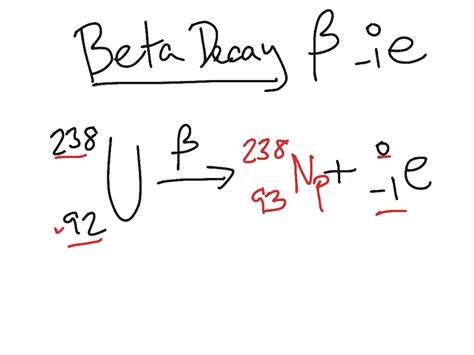 Beta Decay β ₋₁e
²³⁸₉₂U β→ ²³⁸₉₃Np + ⁰₋₁e